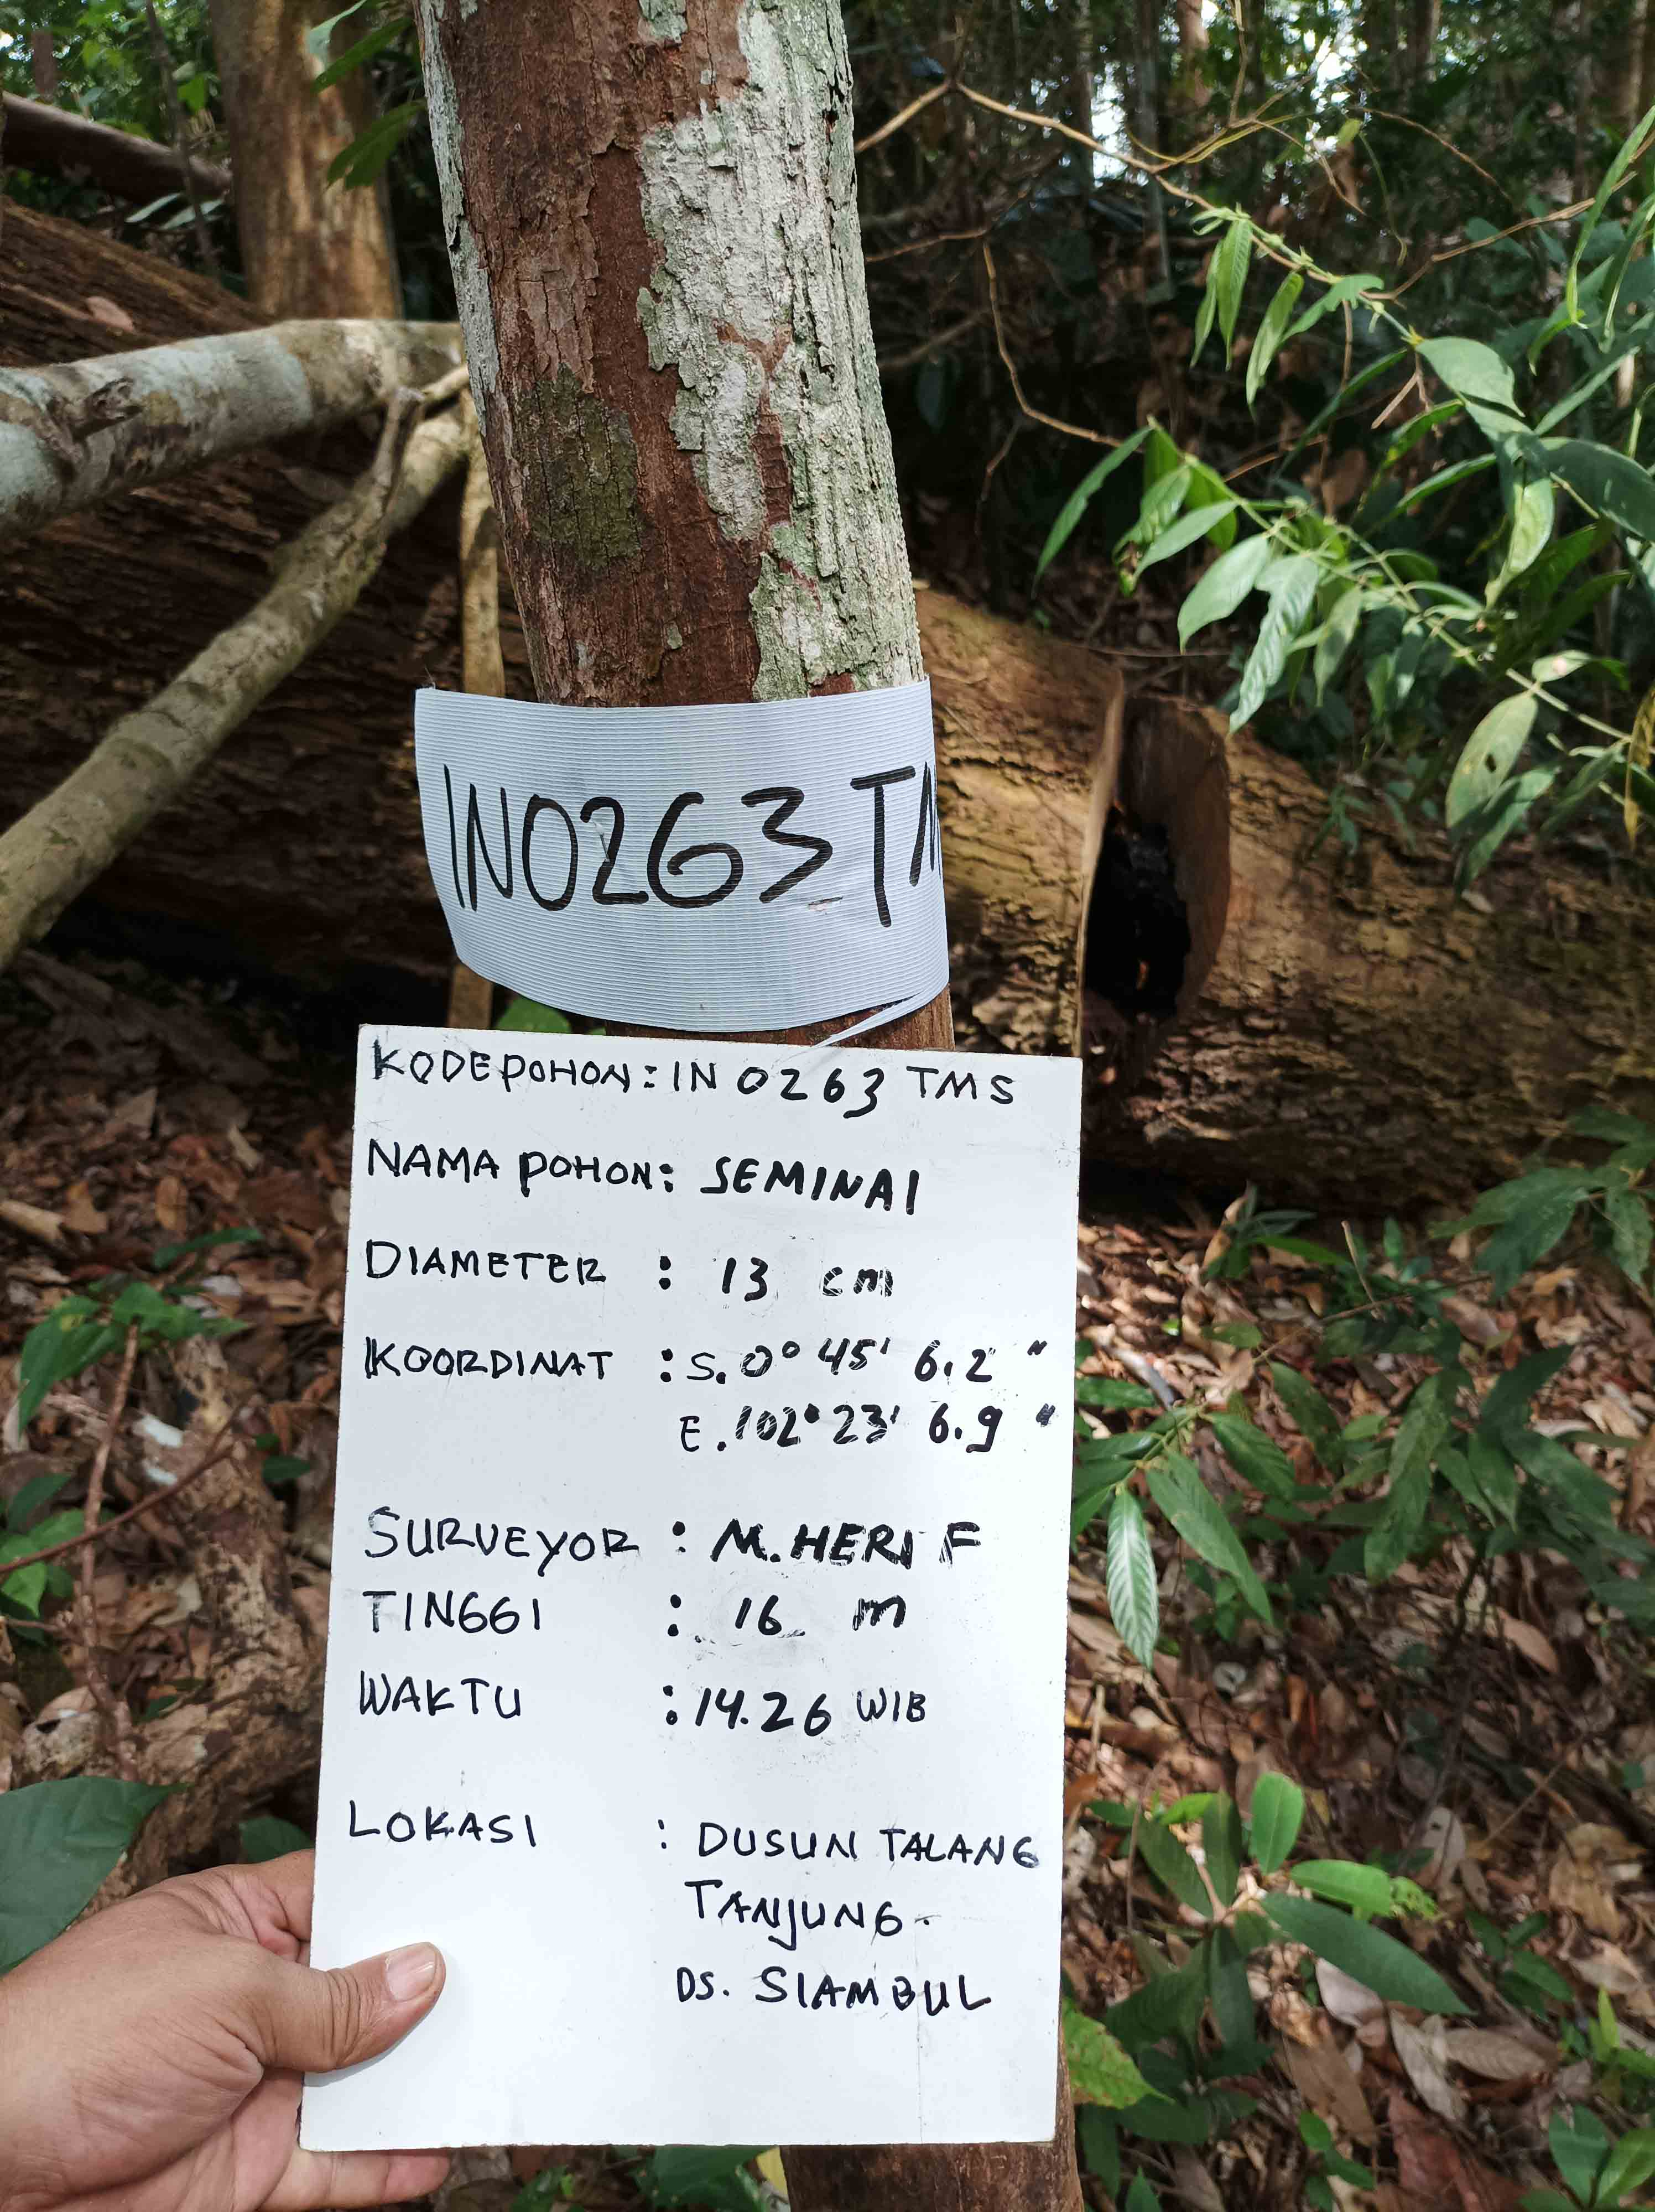 IN0263 TM
KODE POHON : IN 0263 TMS
NAMA POHON : SEMINAI
DIAMETER : 13 cm
KOORDINAT : S. 0° 45' 6.2 "
E. 102° 23' 6.9 "
SURVEYOR : M. HERI F
TINGGI : 16 m
WAKTU : 14.26 WIB
LOKASI : DUSUN TALANG
TANJUNG.
DS. SIAMBUL